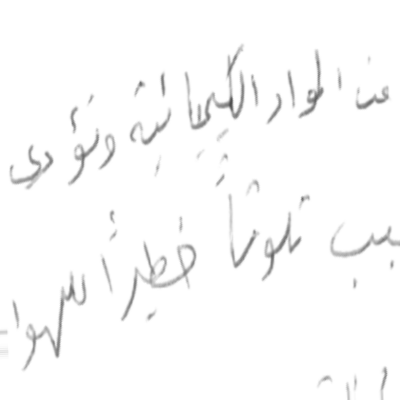 من المواد الكيميائية وتؤدي
تلوثاً خطيراً للهوا